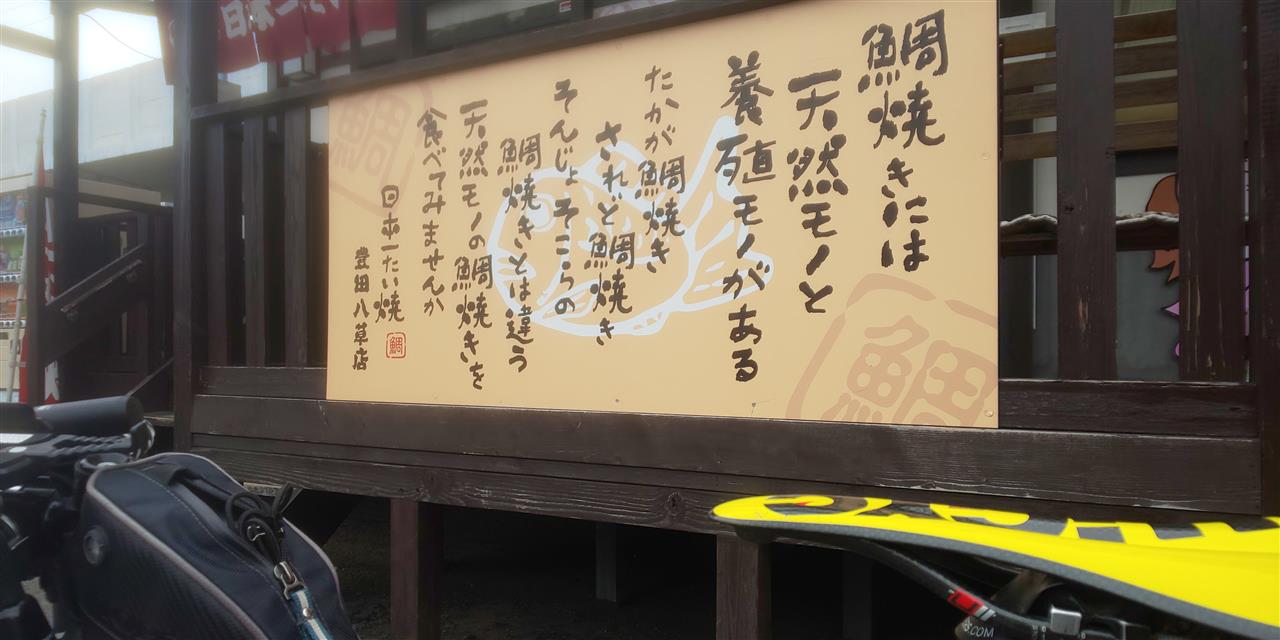 鯛焼きには
天然モノと
養殖モノがある
たかが鯛焼き
されど鯛焼き
そんじょそこらの
鯛焼きとは違う
天然モノの鯛焼きを
食べてみませんか
日本一たい焼
鯛
豊田八草店
鯛
鯛
.COM